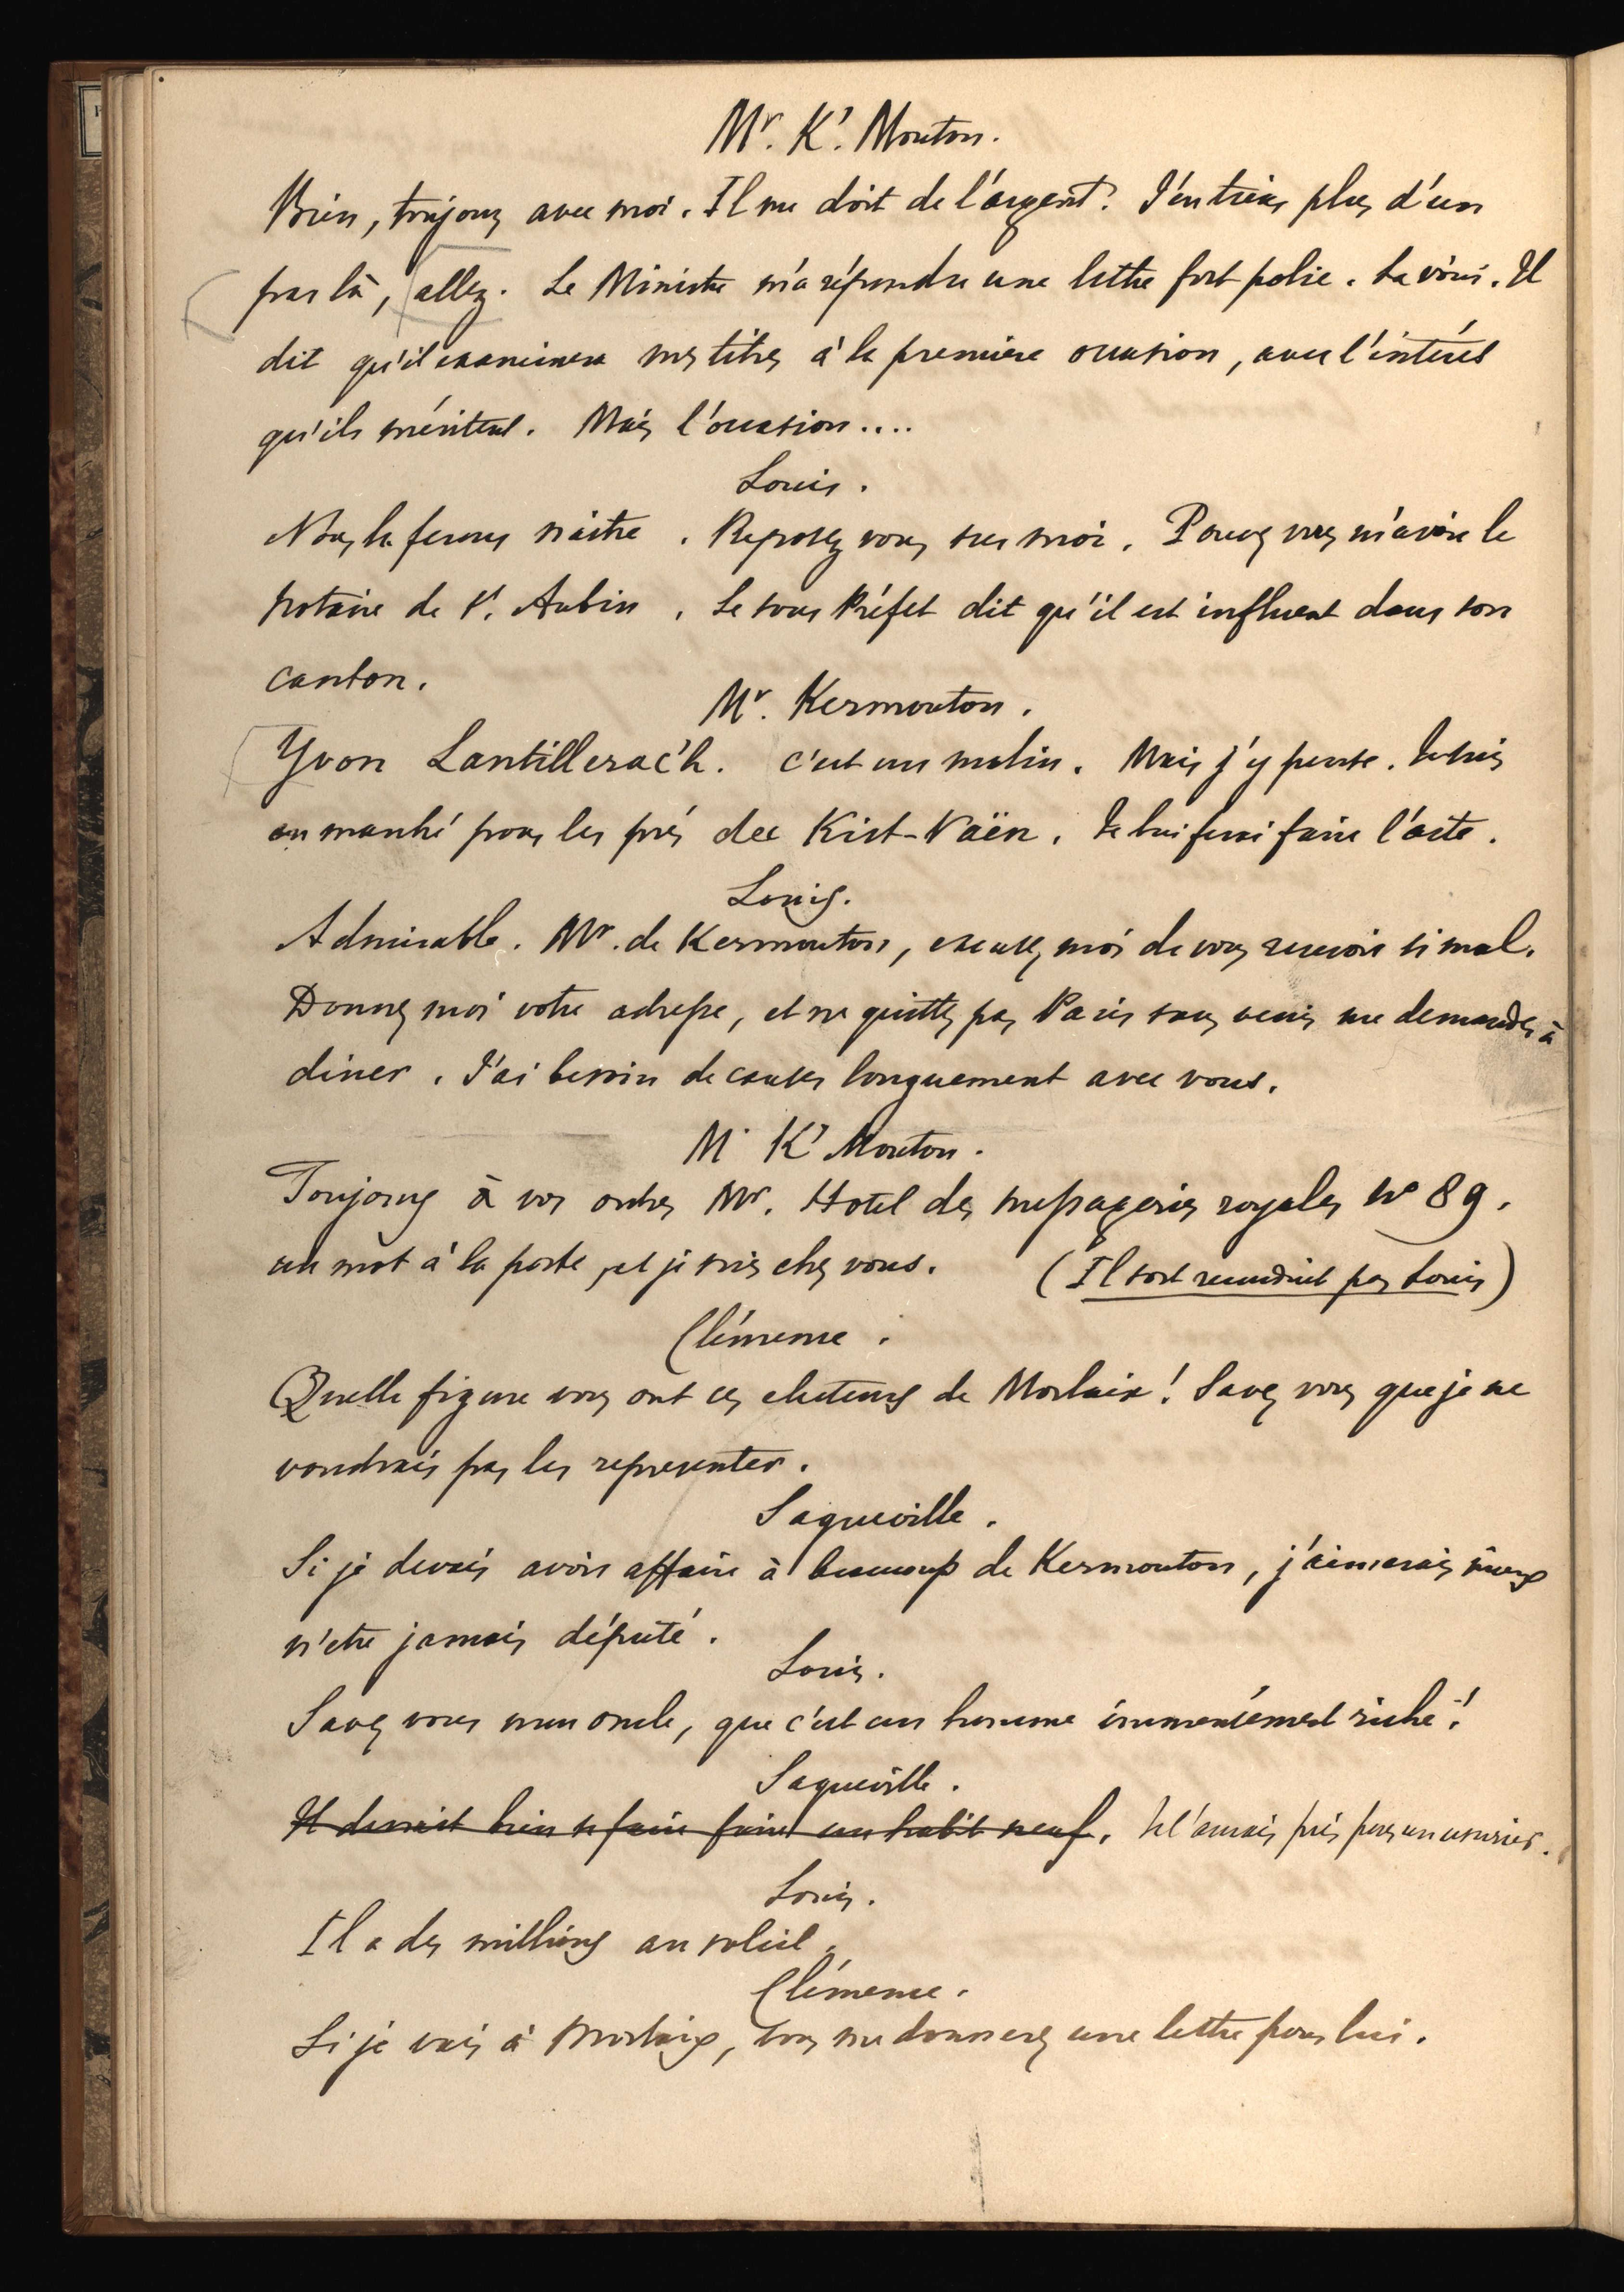 Mr. K'. Mouton.
Bien, toujours avec moi. Il me doit de l'argent. J'en tiens plus d'un
par là, allez. Le Ministre m'a répondu une lettre fort polie. La voici. Il
dit qu'il examinera mes titres à la première occasion, avec l'intérêt
qu'ils méritent. Mais l'occasion....
Louis.
Nous la ferons naitre. Reposez vous sur moi. Pouvez vous m'avoir le
Notaire de St. Aubin. Le sous Préfet dit qu'il est influent dans son
canton.
Mr. Kermouton.
Yvon Lantillerac'h. C'est un malin. Mais j'y pense. Je suis
en marché pour les prés de Kist-Vaën. Je lui ferai faire l'acte.
Louis.
Admirable. Mr. de Kermouton, excusez moi de vous recevoir si mal.
Donnez moi votre adresse, et ne quittez pas Paris sans venir me demander à
diner. J'ai besoin de causer longuement avec vous.
M. K' Mouton.
Toujours à vos ordres Mr. Hotel des messageries royales No 89.
un mot à la poste, et je suis chez vous. (Il sort reconduit par Louis)
Clémence.
Quelle figure vous ont ces electeurs de Morlaix! Savez vous que je ne
voudrais pas les representer.
Saqueville.
Si je devais avoir affaire à beaucoup de Kermouton, j'aimerais mieux
n'etre jamais député.
Louis.
Savez vous mon oncle, que c'est un homme immensément riche!
Saqueville.
Il devrait bien se faire faire un habit neuf. Je l'aurais pris pour un usurier.
Louis.
Il a des millions au soleil.
Clémence.
Si je vais à Morlaix, vous me donnerez une lettre pour lui.